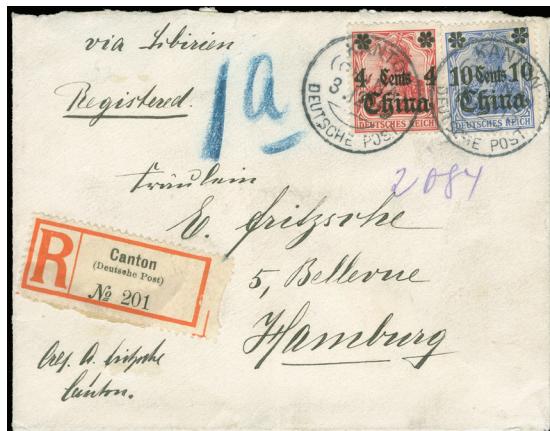 via Sibirien
Registered.
1a
4 Cents 4
China
DEUTSCHES REICH
10 Cents 10
China
DEUTSCHES REICH
KANTON
DEUTSCHE POST
KANTON
DEUTSCHE POST
2084
Fräulein
E. Fritzsche
5, Bellevue
Hamburg
R
Canton
(Deutsche Post)
№ 201
A. Fritzsche
Canton.